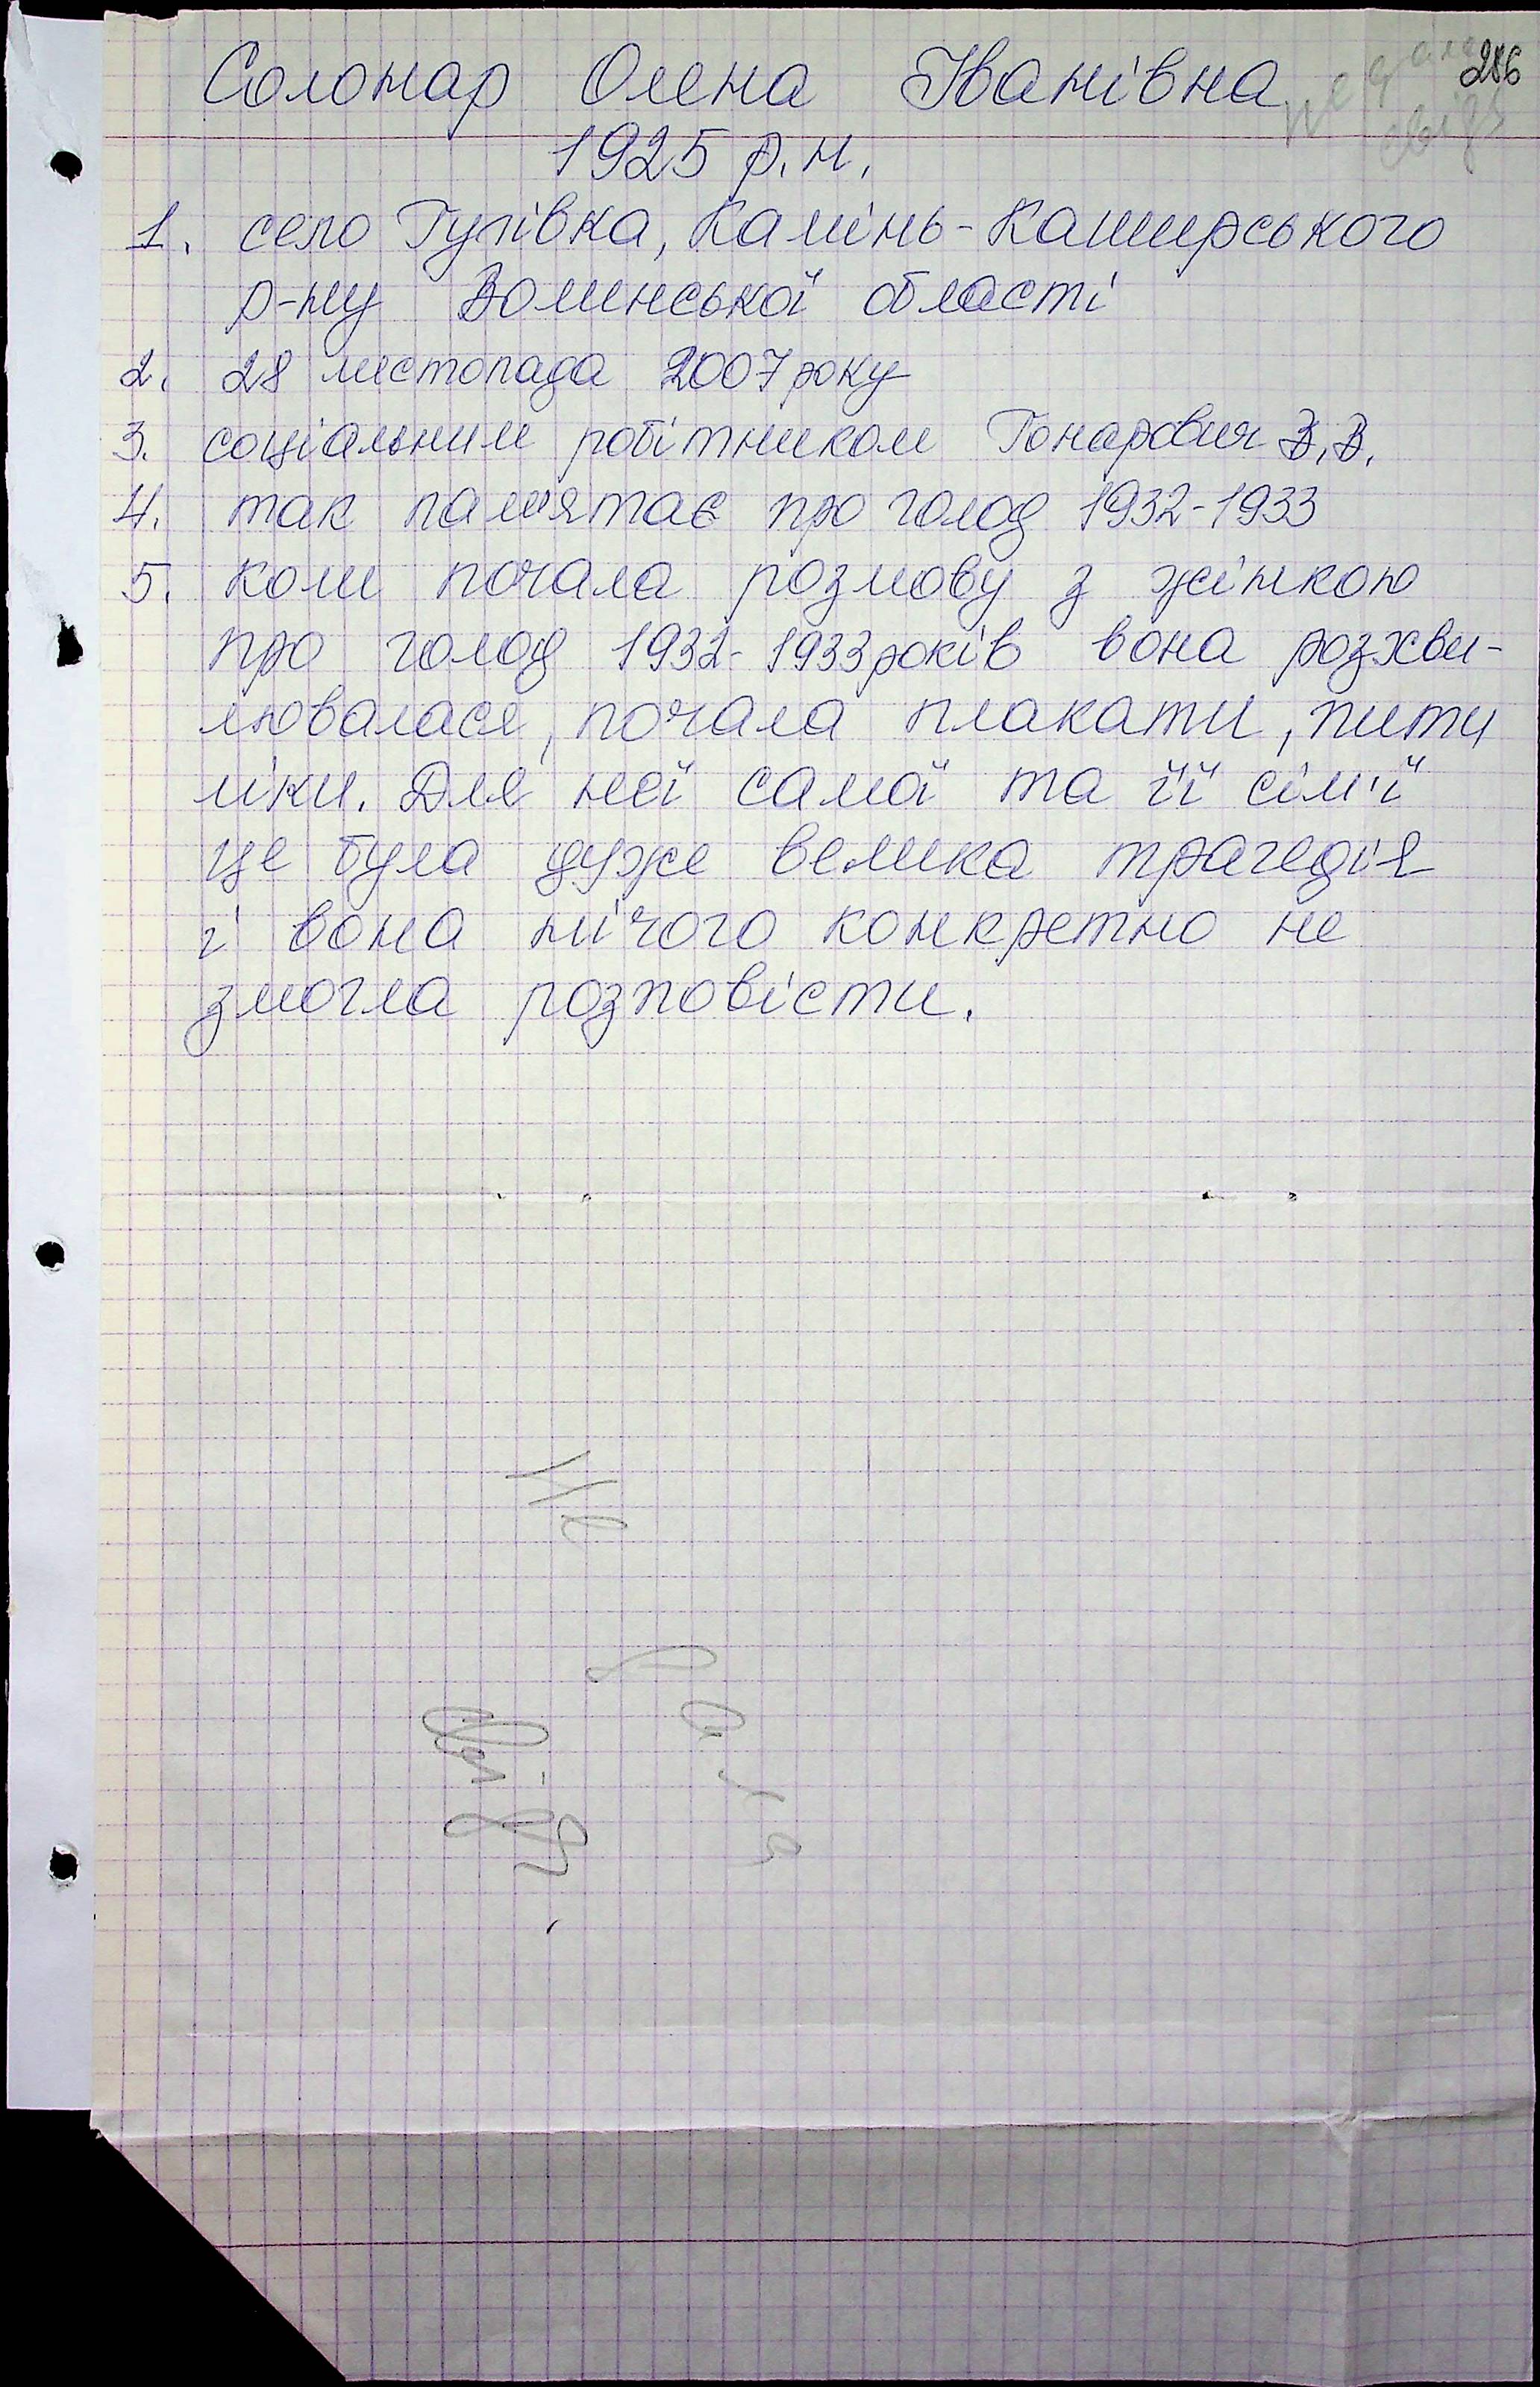 286
Солонар Олена Іванівна
1925 р.н.
1. село Гулівка, Камінь-Каширського
р-ну Волинської області
2. 28 листопада 2007 року
3. соціальним робітником Гонарович В.В.
4. так пам'ятає про голод 1932-1933
5. коли почала розмову з жінкою
про голод 1932-1933 років вона розхви-
лювалася, почала плакати, пити
ліки. Для неї самої та її сім'ї
це була дуже велика трагедія
і вона нічого конкретно не
змогла розповісти.
Не
дала
свід.